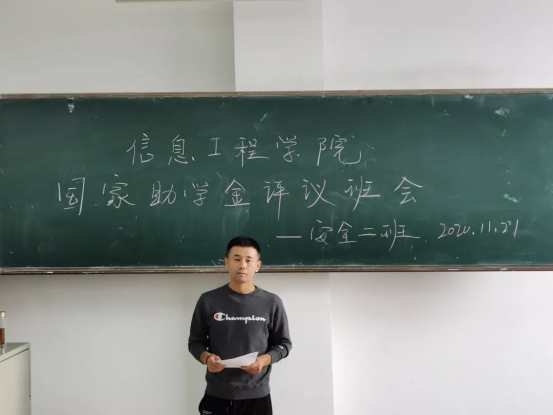 信息工程学院
国家助学金评议班会
—安全二班 2020.11.21
Champion